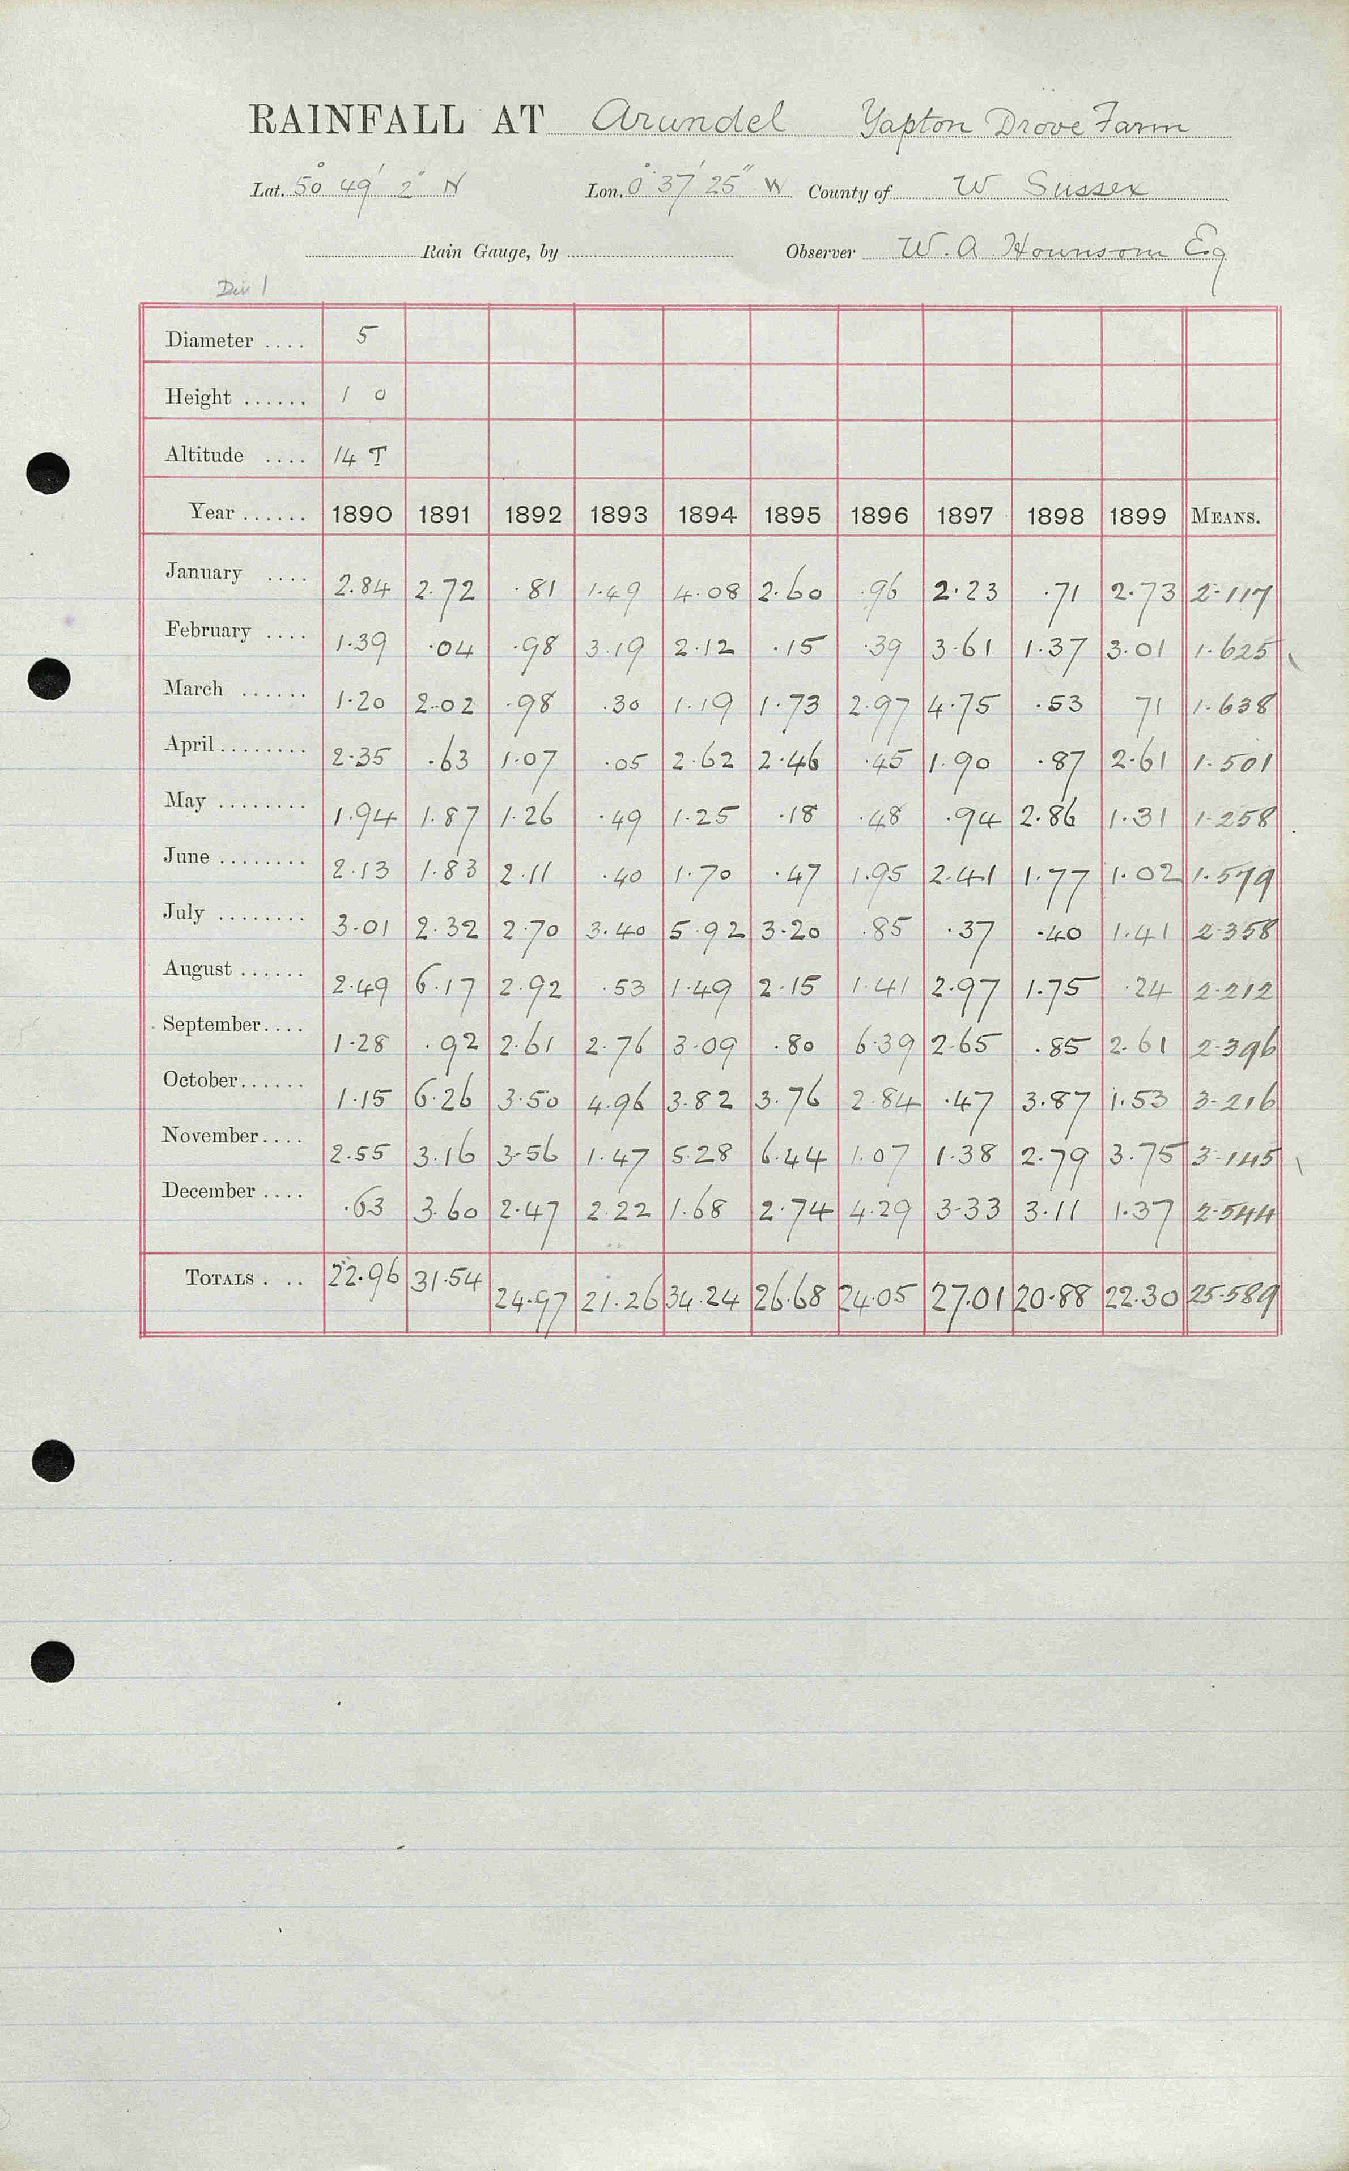 RAINFALL AT Arundel Yapton Drove Farm
Lat. 50° 49' 2" N Lon. 0° 37' 25" W County of W Sussex
Rain Gauge, by Observer W. A Hounsom Eq
Div 1
Diameter .... 5
Height ...... 1 0
Altitude .... 14 T
Year ...... 1890 1891 1892 1893 1894 1895 1896 1897 1898 1899 MEANS.
January .... 2.84 2.72 .81 1.49 4.08 2.60 .96 2.23 .71 2.73 2.117
February .... 1.39 .04 .98 3.19 2.12 .15 .39 3.61 1.37 3.01 1.625
March ...... 1.20 2.02 .98 .30 1.19 1.73 2.97 4.75 .53 71 1.638
April ........ 2.35 .63 1.07 .05 2.62 2.46 .45 1.90 .87 2.61 1.501
May ........ 1.94 1.87 1.26 .49 1.25 .18 .48 .94 2.86 1.31 1.258
June ........ 2.13 1.83 2.11 .40 1.70 .47 1.95 2.41 1.77 1.02 1.579
July ........ 3.01 2.32 2.70 3.40 5.92 3.20 .85 .37 .40 1.41 2.358
August ...... 2.49 6.17 2.92 .53 1.49 2.15 1.41 2.97 1.75 .24 2.212
September.... 1.28 .92 2.61 2.76 3.09 .80 6.39 2.65 .85 2.61 2.396
October...... 1.15 6.26 3.50 4.96 3.82 3.76 2.84 .47 3.87 1.53 3.216
November.... 2.55 3.16 3.56 1.47 5.28 6.44 1.07 1.38 2.79 3.75 3.145
December .... .63 3.60 2.47 2.22 1.68 2.74 4.29 3.33 3.11 1.37 2.544
TOTALS . .. 22.96 31.54 24.97 21.26 34.24 26.68 24.05 27.01 20.88 22.30 25.589